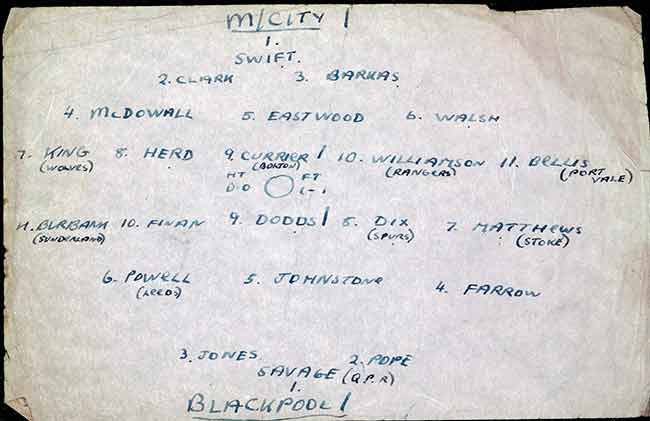 M/CITY 1
1.
SWIFT.
2. CLARK 3. BARKAS
4. McDOWALL 5. EASTWOOD 6. WALSH
7. KING 8. HERD 9. CURRIER 1 10. WILLIAMSON 11. BELLIS
(WOLVES) (BOLTON) (RANGERS) (PORT VALE)
HT FT
0-0 1-1
11. BURBANK 10. FINAN 9. DODDS 1 8. DIX 7. MATTHEWS
(SUNDERLAND) (SPURS) (STOKE)
6. POWELL 5. JOHNSTONE 4. FARROW
(LEEDS)
3. JONES 2. POPE
SAVAGE (Q.P.R)
1.
BLACKPOOL 1